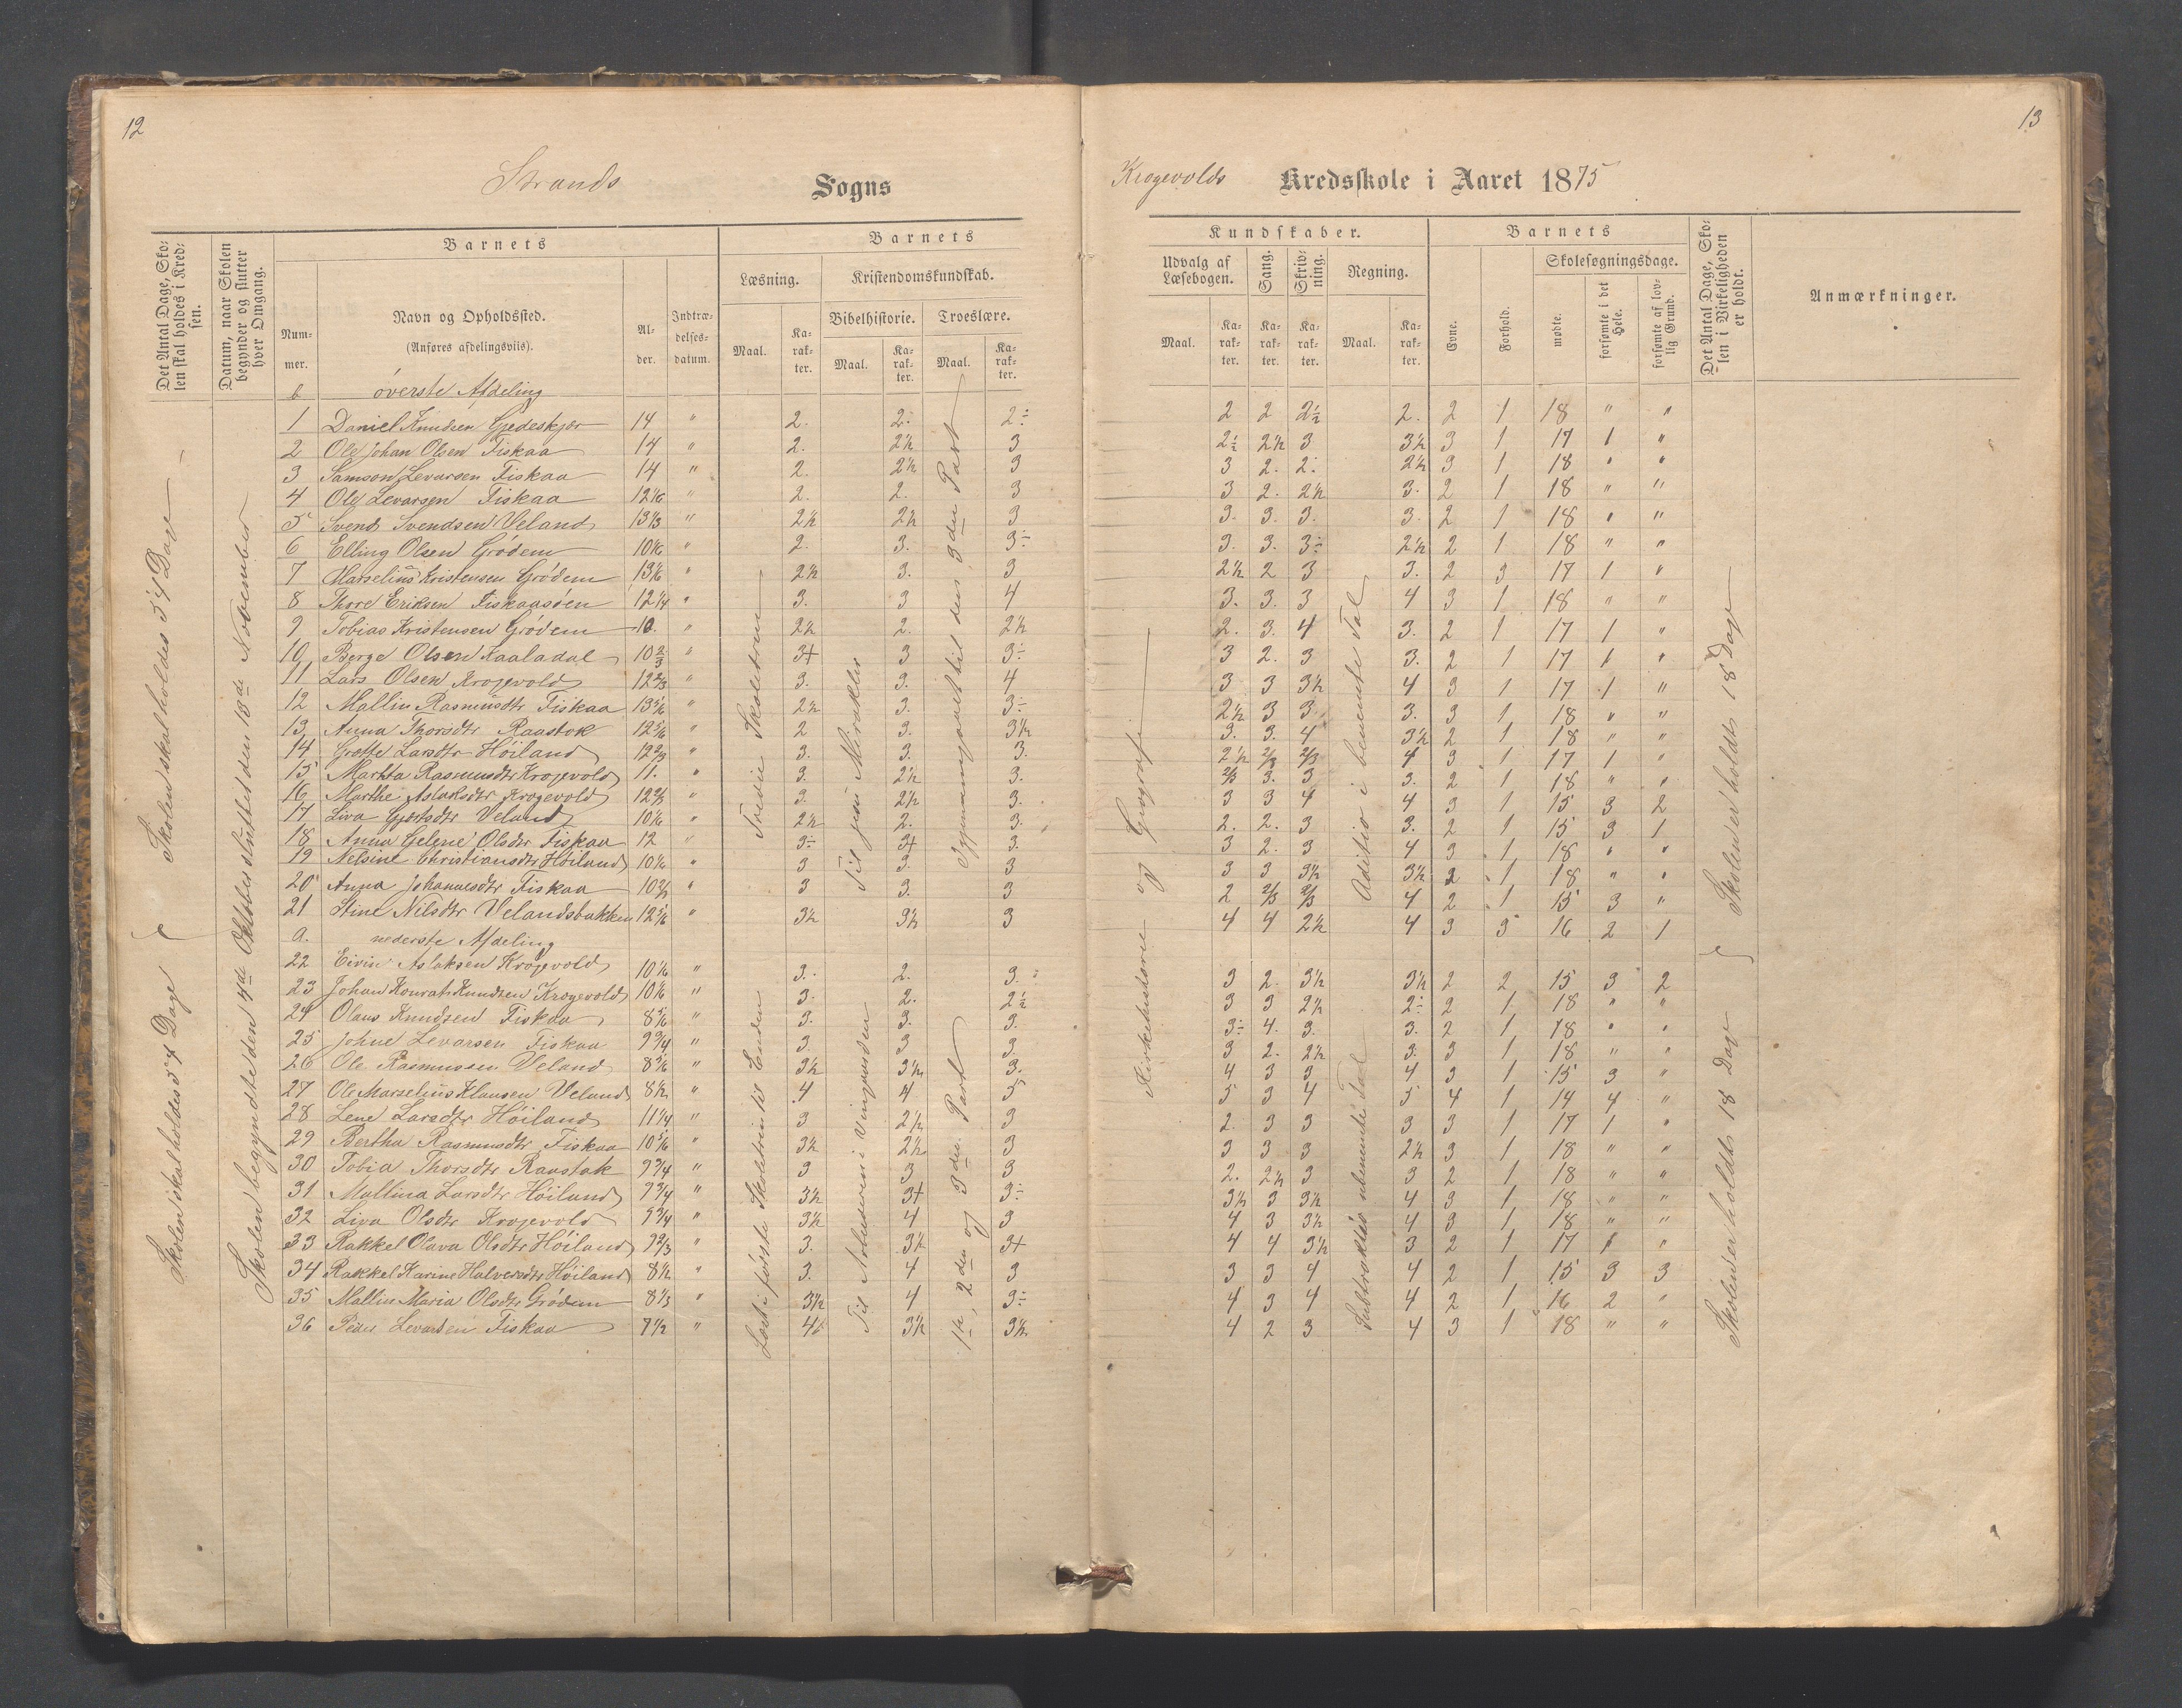 12
13
Strands Sogns
Krogevolds Kredsskole i Aaret 1875
Det Antal Dage, Skolen skal holdes i Kredsen.
Datum, naar Skolen begynder og slutter hver Omgang.
Barnets
Nummer.
Navn og Opholdssted.
(Anføres afdelingsviis).
Alder.
Indtrædelsesdatum.
Barnets
Læsning.
Kristendomskundskab.
Bibelhistorie. Troeslære.
Maal. Karakter. Maal. Karakter. Maal. Karakter.
Kundskaber.
Udvalg af Læsebogen. Sang. Skrivning. Regning.
Maal. Karakter. Karakter. Karakter. Maal. Karakter.
Barnets
Evne. Forhold. Skolesøgningsdage.
mødte. forsømte i det Hele. forsømte af lovlig Grund.
Det Antal Dage, Skolen i Virkeligheden er holdt.
Anmærkninger.
b øverste Afdeling
1 Daniel Knudsen Gjedeskjær 14 " 2. 2. 2÷ 2 2 2½ 2. 2 1 18 " "
2 Ole Johan Olsen Fiskaa 14 " 2. 2½ 3 2½ 2½ 3 3½ 3 1 17 1 "
3 Samson Levarsen Fiskaa 14 " 2. 2½ 3 3 2. 2÷ 2½ 3 1 18 " "
4 Ole Levarsen Fiskaa 12 1/6 " 2. 2. 3 3 2. 2½ 3. 2 1 18 " "
5 Svend Svendsen Veland 13 1/3 " 2½ 2½ 3 3. 3. 3. 3. 2 1 18 " "
6 Elling Olsen Grødem 10 1/6 " 2. 3. 3÷ 3. 3. 3÷ 2½ 2 1 18 " "
7 Marselius Kristensen Grødem 13 1/6 " 2½ 3. 3 2½ 2 3 3. 2 3 17 1 "
8 Thore Eriksen Fiskaasøen 12 1/4 " 3. 3 4 3. 3. 3 4 3 1 18 " "
9 Tobias Kristensen Grødem 10. " 2½ 2. 2½ 2. 3. 4 3. 2 1 17 1 "
10 Berge Olsen Kaaladal 10 2/3 " 3+ 3 3÷ 3 2. 3 3. 2 1 17 1 "
11 Lars Olsen Krogevold 12 2/3 " 3. 3. 4 3 3 3½ 4 3 1 17 1 "
12 Mallin Rasmusdtr Fiskaa 13 5/6 " 2½ 3. 3÷ 2½ 3 3 3. 3 1 18 " "
13 Anna Thorsdtr Raustok 12 5/6 " 2 3. 3½ 3. 3. 4 3½ 2 1 18 " "
14 Grethe Larsdtr Høiland 12 2/3 " 3. 3. 3. 2½ 2/3 2/3 4 3 1 17 1 "
15 Martha Rasmusdtr Krogevold 11. " 3. 2½ 3. 2/3 3. 3 3. 2 1 18 " "
16 Marthe Aslaksdtr Krogevold 12 2/3 " 3. 2½ 3. 3 3 4 4 3 1 15 3 2
17 Liva Gjertsdtr Veland 10 1/6 " 2½ 2. 3. 2. 2. 3 3. 2 1 15 3 1
18 Anna Gelene Olsdtr Fiskaa 12 " 3÷ 3+ 3. 3 2. 3 4 3 1 18 " "
19 Nelsine Christiansdtr Høiland 10 1/6 " 3 3. 3 3 3 3½ 3½ 2 1 18 " "
20 Anna Johannesdtr Fiskaa 10 2/3 " 3 3. 3 2 2/3 2/3 4 2 1 15 3 "
21 Stine Nilsdtr Velandsbakken 12 5/6 " 3½ 3½ 3 4 4 2½ 4 3 3 16 2 1
a. nederste Afdeling
22 Eivin Aslaksen Krogevold 10 1/6 " 3. 2. 3. 3 2. 3½ 3½ 2 2 15 3 2
23 Johan Konrat Knudsen Krogevold 10 1/6 " 3. 2. 2½ 3 3 2½ 2÷ 2 1 18 " "
24 Olaus Knudsen Fiskaa 8 5/6 " 3. 3. 3. 3÷ 4. 3. 3. 2 1 18 " "
25 Johne Levarsen Fiskaa 9 3/4 " 3 3 3. 3 2. 2½ 3. 3 1 18 " "
26 Ole Rasmussen Veland 8 5/6 " 3½ 3½ 3. 4 3 3 4 3 1 15 3 "
27 Ole Marselius Klausen Veland 8½ " 4 4 5 5 3 4 5 4 1 14 4 "
28 Lene Larsdtr Høiland 11 1/4 " 3 2½ 3 2. 3 3 3 3 1 17 1 "
29 Bertha Rasmusdtr Fiskaa 10 5/6 " 3½ 2½ 3 3 3 3 2½ 3 1 18 " "
30 Tobia Thorsdtr Raustok 9 3/4 " 3 3 3 2. 2½ 3 3 2 1 18 " "
31 Mallina Larsdtr Høiland 7 3/4 " 3½ 3+ 3÷ 3½ 3 3½ 4 3 1 18 " "
32 Liva Olsdtr Krogevold 9 3/4 " 3½ 4 3 4 3 3½ 4 3 1 18 " "
33 Rakkel Olava Olsdtr Høiland 9 2/3 " 3. 3½ 3+ 4 4 3½ 3 2 1 17 1 "
34 Rakkel Karine Halvorsdtr Høiland 8½ " 3. 4 3 3 3 4 4 2 1 15 3 3
35 Mallin Maria Olsdtr Grødem 8 1/3 " 3½ 4 3÷ 4 3 4 4 2 1 16 2 "
36 Peder Levarsen Fiskaa 7½ " 4 3½ 3½ 4 2 3 4 3 1 18 " "
Skolen skal holdes 54 Dage
Skolen skal holdes 54 Dage
Skolen begyndte den 4de Oktober sluttet den 18de November
Tredie Skoletrin
Læst i første Skoletrin til Enden
Til Jesu Mirakler
Til Arbeiderne i Vingaarden
Igjennemgaaet til den 3die Part
1ste, 2den og 3den Part
Kirkehistorie og Geografi
Aditio i benevnte Tal
Subtraktio ubenevnte Tal
Skolen er holdt 18 Dage
Skolen er holdt 18 Dage